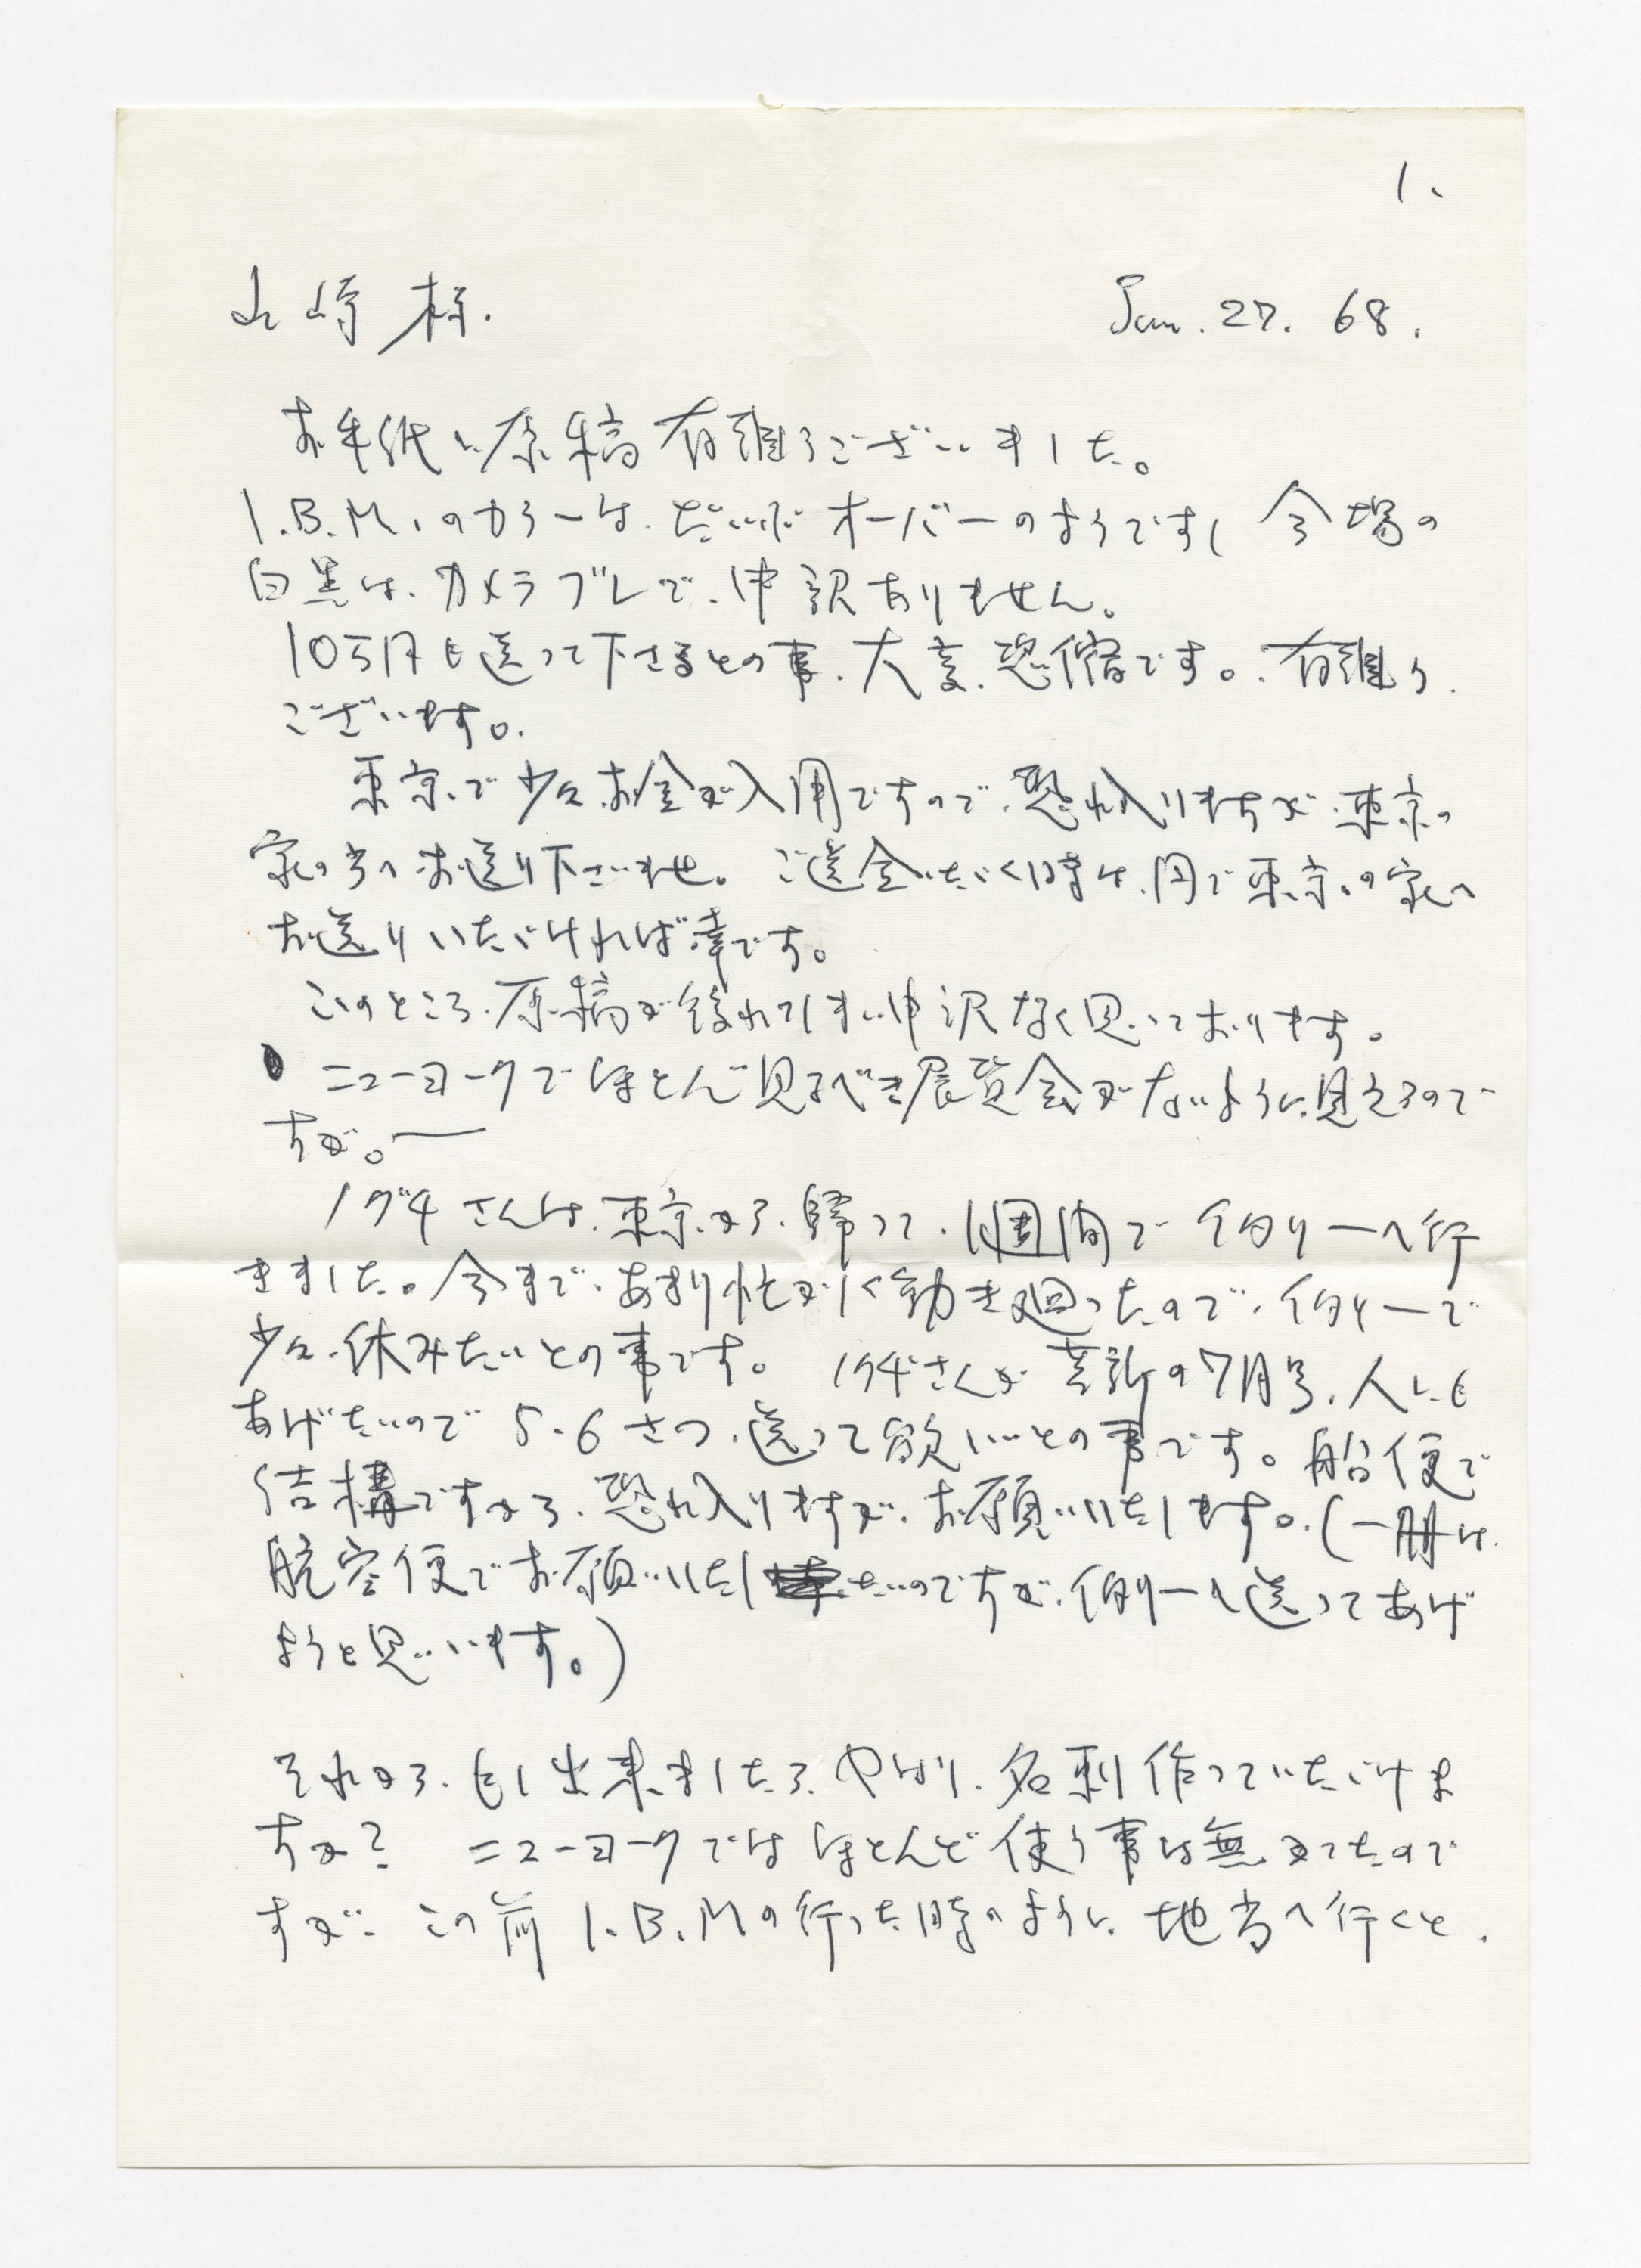 1、
山崎様.
Jan. 27. 68.
お手紙と原稿有難うございました。
I.B.M.のカラーは、だいぶオーバーのようですし 会場の
白黒は、カメラブレで、申訳ありません。
10万円も送って下さるとの事、大変、恐縮です。有難う
ございます。
東京で少々お金が入用ですので、恐れ入りますが、東京の
家の方へお送り下さいませ。ご送金いたゞく時は、円で東京の家へ
お送りいたゞければ幸です。
このところ、原稿が後れてしまい申訳なく思っております。
ニューヨークでほとんど見るべき展覧会がないように見えるので
すが。—
ノグチさんは、東京から帰って、1週間でイタリーへ行
きました。今まで、あまり忙がしく動き廻ったので、イタリーで
少々休みたいとの事です。ノグチさんが芸新の7月号、人にも
あげたいので5・6さつ、送って欲しいとの事です。船便で
結構ですから、恐れ入りますが、お願いいたします。(一冊は
航空便でお願いいたしたいのですが、イタリーへ送ってあげ
ようと思います。)
それから、もし出来ましたら、やはり、名刺作っていたゞけま
すか? ニューヨークではほとんど使う事は無かったので
すが、この前I.B.Mの行った時のように、地方へ行くと、